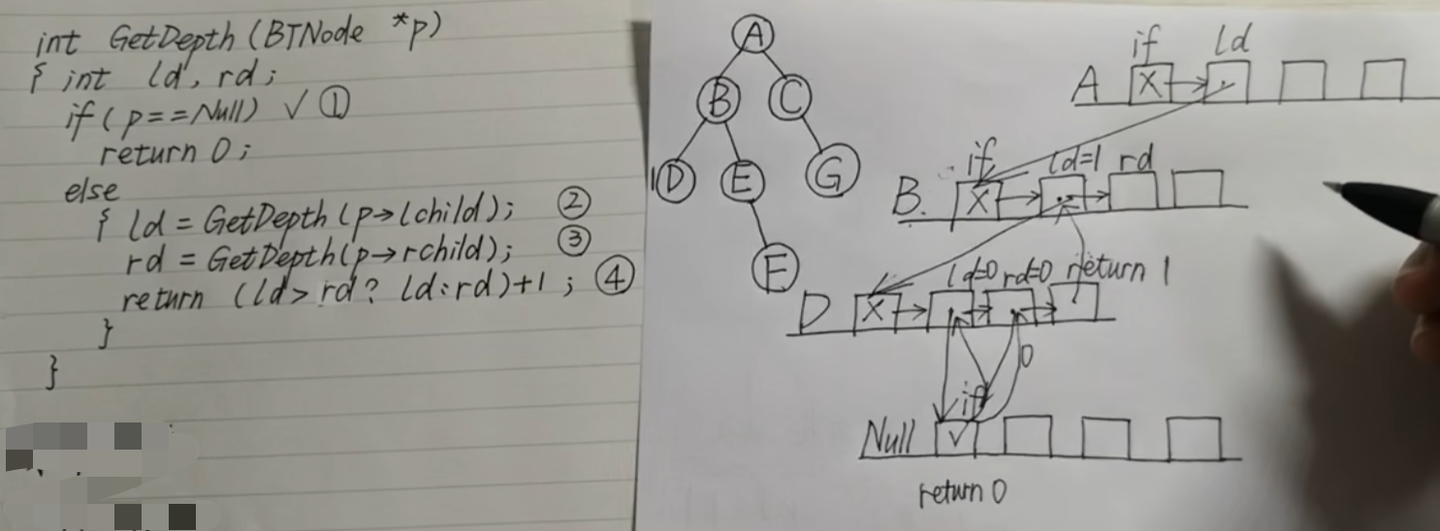 int GetDepth (BTNode *p)
{ int ld, rd;
if (p==Null) √ ①
return 0;
else
{ ld = GetDepth (p→lchild); ②
rd = GetDepth(p→rchild); ③
return (ld> rd? ld:rd)+1 ; ④
}
}
A
B C
D E G
F
if ld
A X
if ld=1 rd
B. X
ld=0 rd=0 return 1
D X
0
if
Null √
return 0